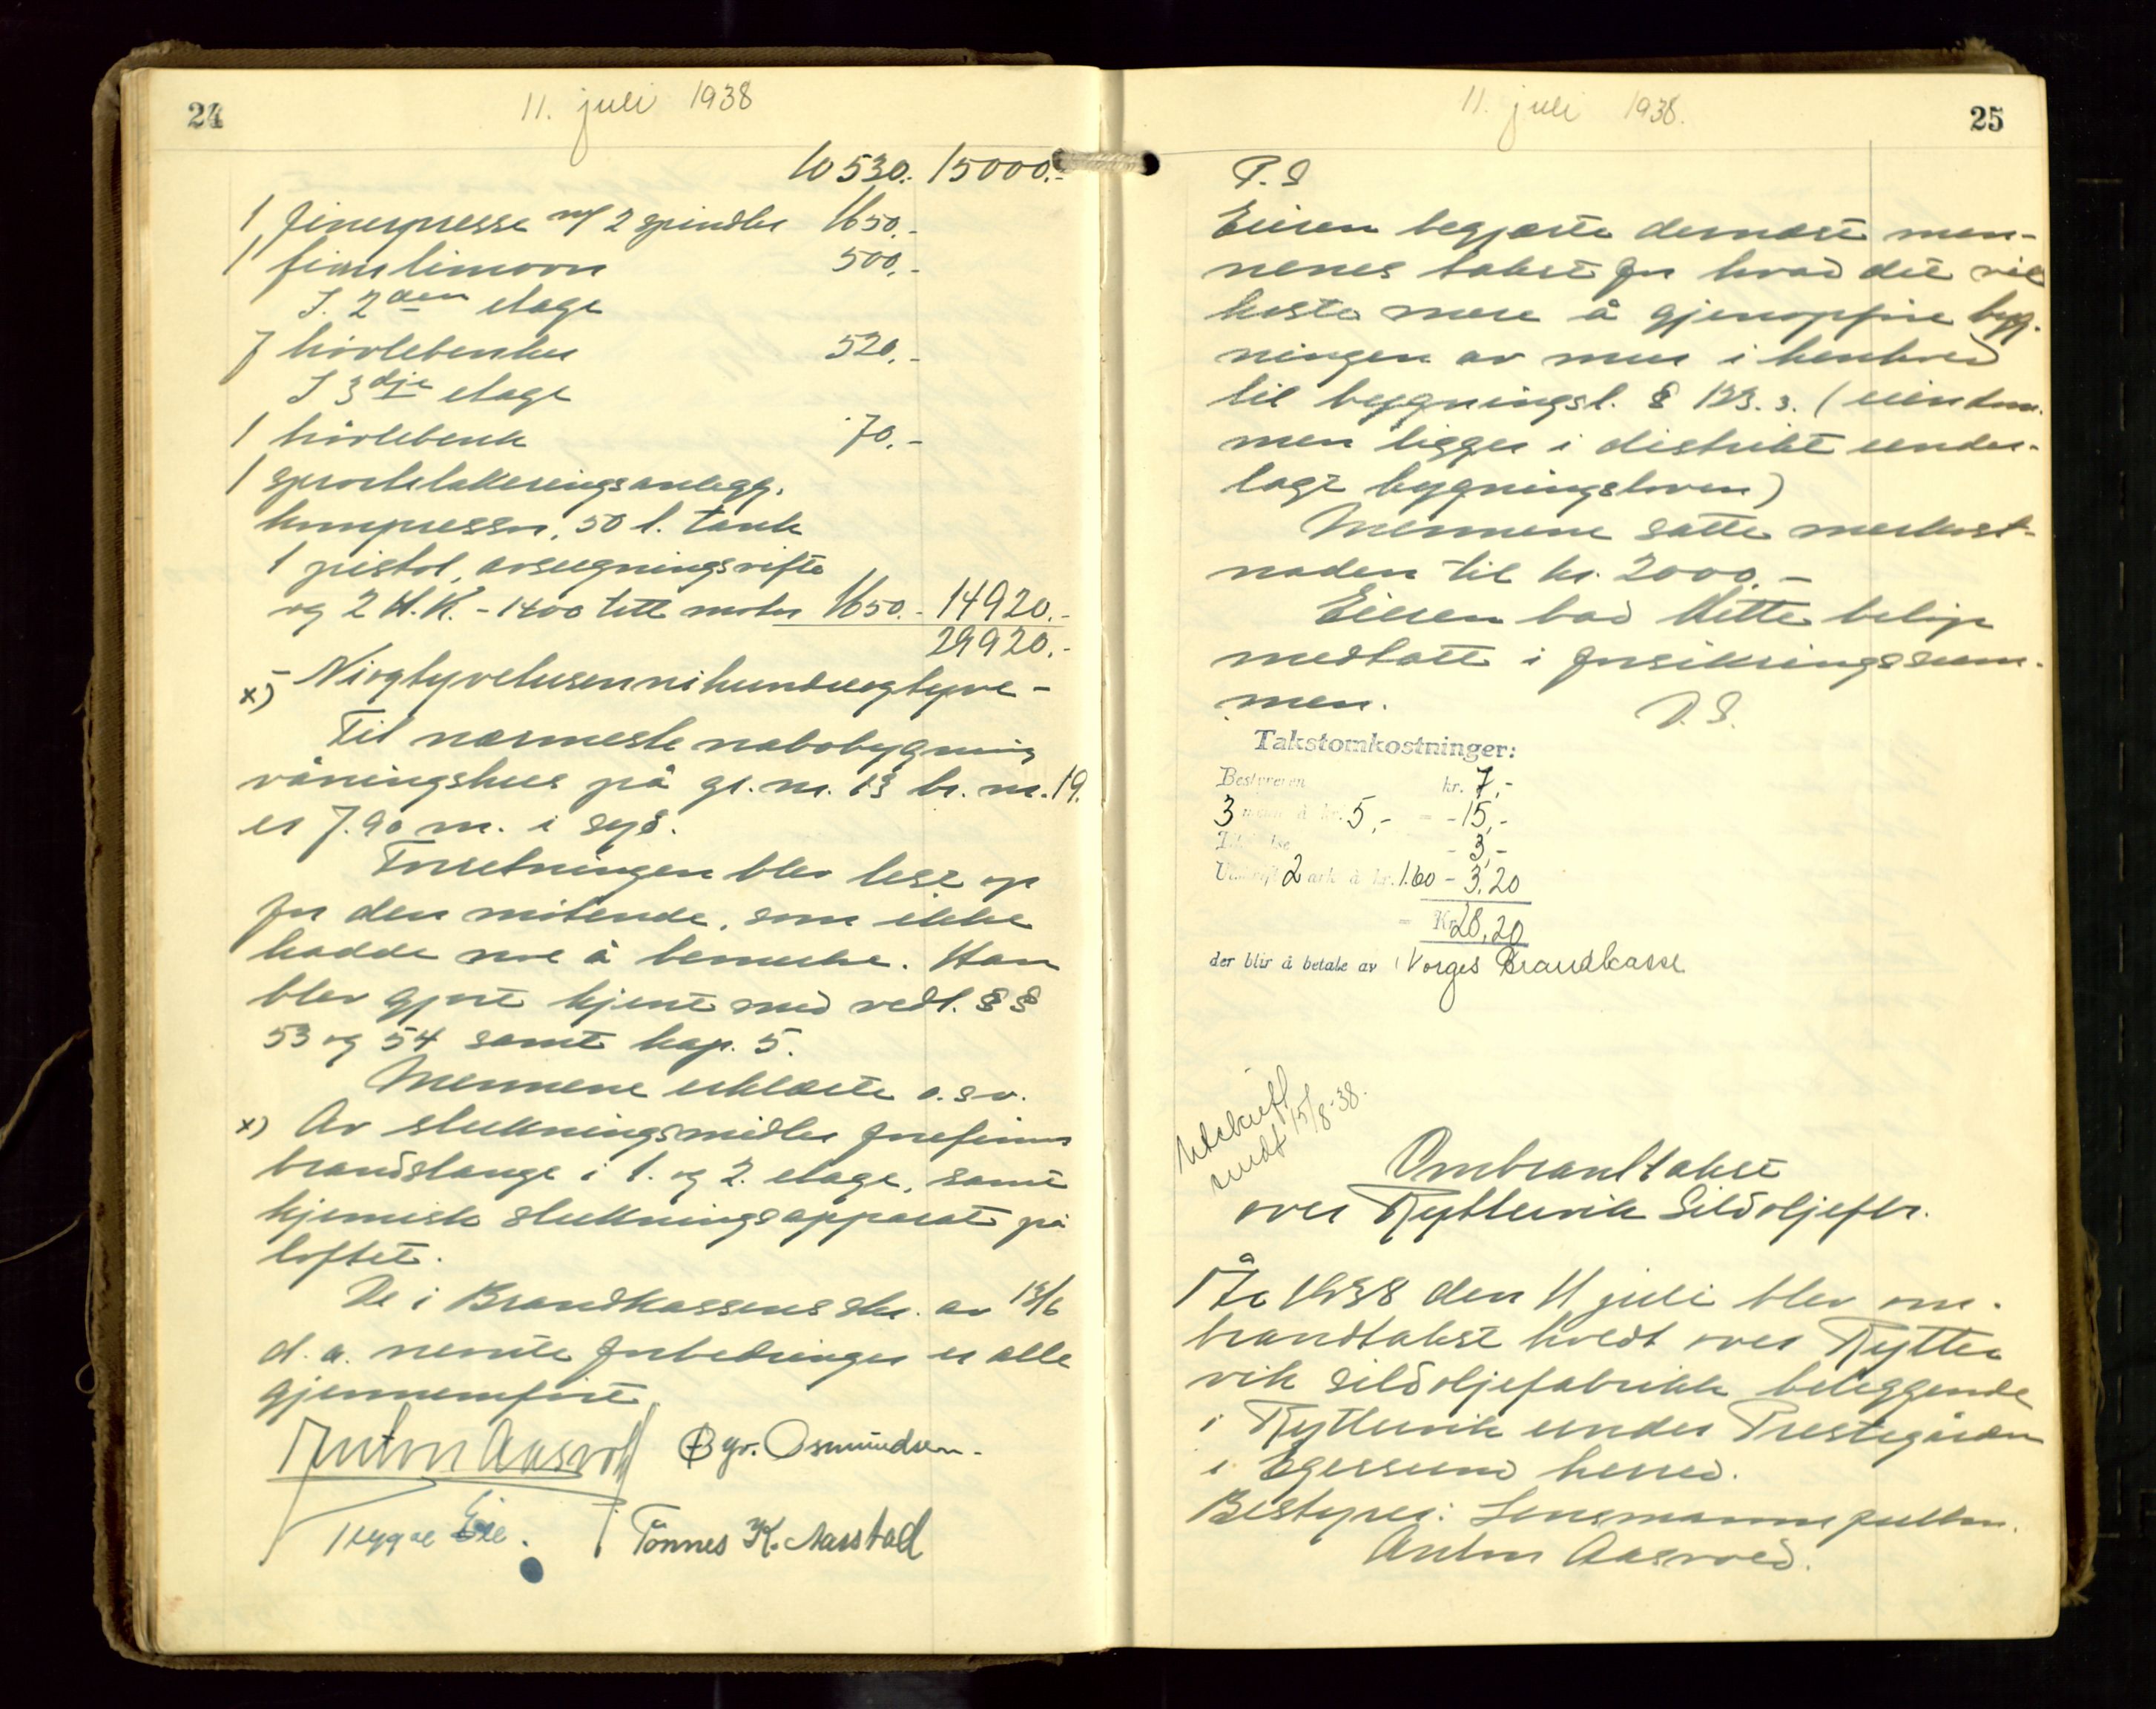 24
11. juli 1938
10530.- 15000.-
1 finerpresse m/ 2 spindler 1650.-
1 finerlimovn 500.-
I. 2den etage
7 hövlebenker 520.-
I 3dje etage
1 hövlebenk 70.-
1 sprøitelakkeringsanlegg,
kompressor, 50 l. tank
1 pistol, avsugningsvifte
og 2 H.K. - 1400 tett motor 1650.- 14920.-
29920.-
x) - Niogtyvetusennihundreogtyve -
Til nærmeste nabobygning
våningshus på gr. nr. 13 br. nr. 19.
er 7.90 m. i syd.
Forretningen blev lest op
for den møtende, som ikke
hadde noe å bemerke. Han
blev gjort kjent med vedt. § §
53 og 54 samt kap. 5.
Mennene erklærte o.s.v.
x) Av slukningsmidler forefinnes
brandslange i 1. og 2. etage, samt
kjemisk slukningsapparat på
loftet.
De i Brandkassens skr. av 13/6
d.a. nevnte forbedringer er alle
gjennemført.
Anton Aasvold Gyr. Osmundsen.
Trygve Eie. Tönnes K. Aarstad
25
11. juli 1938.
P.S
Eieren begjærte dernæst men-
nenes takst for hvad det vil
koste mere å gjenopføre byg-
ningen av mur i henhold
til bygningsl. § 123.3. (eiendom-
men ligger i distrikt under-
lagt bygningsloven)
Mennene satte merkost-
naden til kr. 2000.-
Eieren bad dette beløp
medtatt i forsikringssum-
men. D.S.
Takstomkostninger:
Bestyreren kr. 7,-
3 menn à kr. 5,- = - 15,-
- 3,-
Utskrift 2 ark à kr. 1.60 - 3.20
= Kr. 28,20
der blir å betale av Norges Brandkasse
Utskrift
sendt 15/8-38.
Ombrandtakst
over Ryttervik Sildoljefbr.
År 1938 den 11 juli blev om-
brandtakst holdt over Rytter
vik sildoljefabrikk beliggende
i Ryttervik under Prestegården
i Egersund herred.
Bestyrer: Lensmannsfullm.
Anton Aasvold.